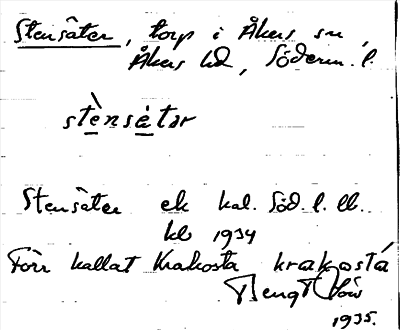 Stensäter, torp i Åkers sn,
Åkers hd, Söderm. l.
stènsátər
Stensäter ek kal. Söd. l. ll.
kb 1934
Förr kallat Krakosta krakostá
Bengt
1935.